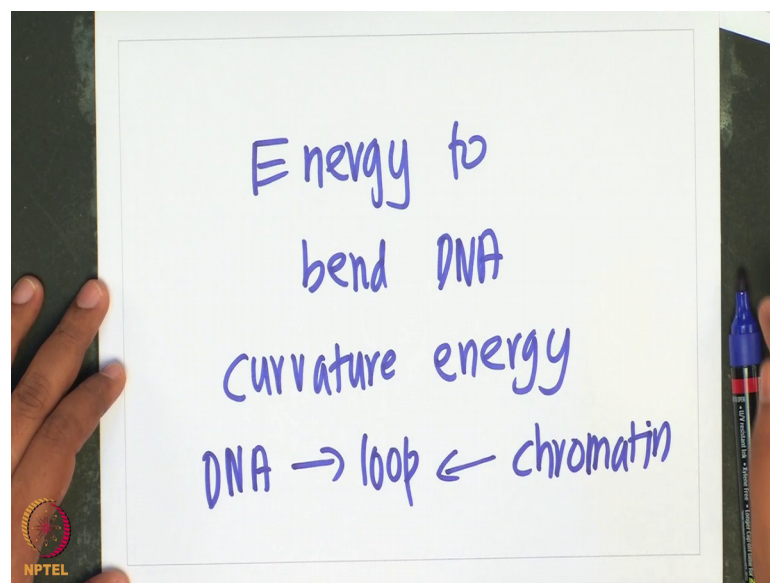 Energy to
bend DNA
curvature energy
DNA → loop ← chromatin
NPTEL